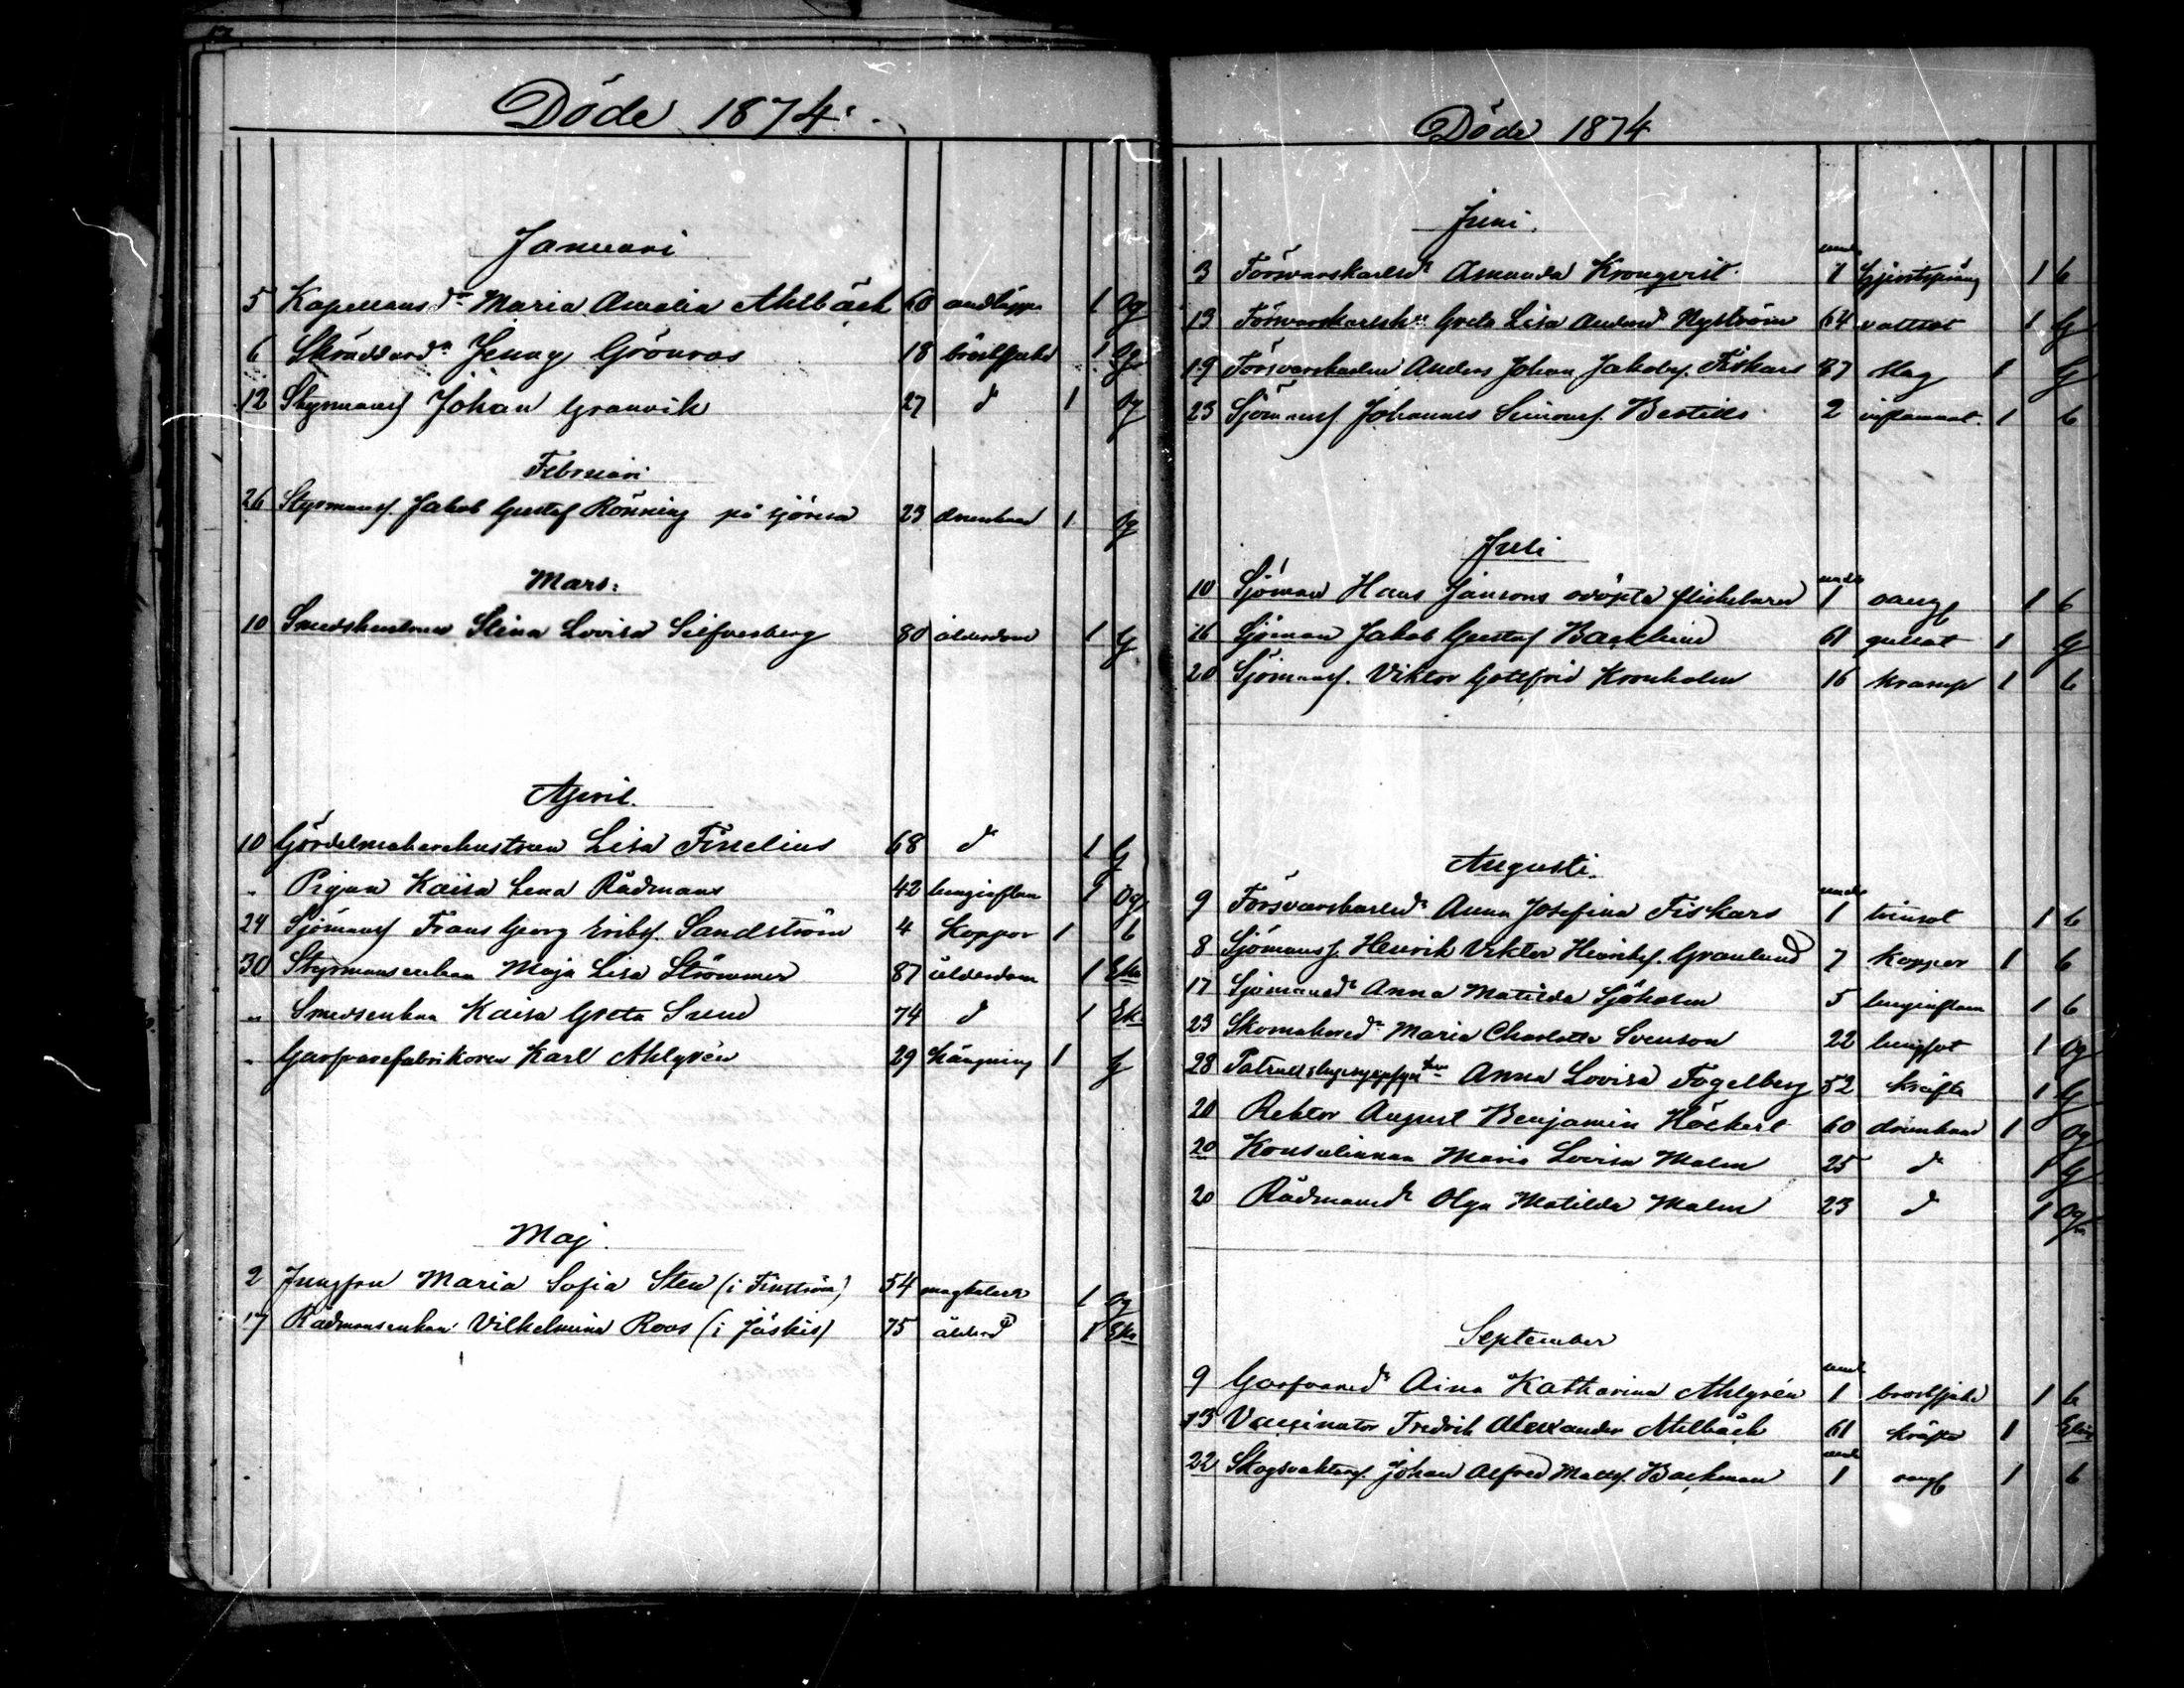 Döde 1874.
Januari
5 Kapellansdr Maria Amalia Ahlbäck 60 andtäppa 1 Og
6 Skräddardr Jenny Grönros 18 bröstsjukd 1 Og
12 Styrmansf Johan Granvik 27 d 1 Og
Februari
26 Styrmansf. Jakob Gustaf Rönning på sjöresa 23 drunknad 1 Og
Mars.
10 Smedshustrun Stina Lovisa Silfverberg 80 ålderdom 1 G
April.
10 Gördelmakarehustrun Lisa Finelius 68 d 1 G
" Pigan Kaisa Lena Rådmans 42 lunginflam 1 Og
24 Sjömansf Frans Georg Eriksf. Sandström 4 Koppor 1 b
30 Styrmansenkan Maja Lisa Strömmer 87 ålderdom 1 Eka
" Smedsenkan Kaisa Greta Sund 74 d 1 Eka
" Garfvarefabrikören Karl Ahlgrén 29 hängning 1 G
Maj.
2 Jungfru Maria Sofia Sten (i Finström) 54 1 Og
17 Rådmansenkan Vilhelmina Roos (i Jäskis) 75 ålderd 1 Eka
Döde 1874
Juni.
3 Försvarskarlsdr Amanda Kronqvist under 1 1 b
13 Försvarskarlshu Greta Lisa Andersdr Nyström 64 vattsot 1 G
19 Försvarskarlen Anders Johan Jakobsf. Fiskars 37 slag 1 G
23 Sjömansf Johannes Simonsf. Bertills 2 inflammat. 1 b
Juli
10 Sjöman Hans Jansons odöpta flickebarn under 1 oangf 1 b
16 Sjöman Jakob Gustaf Backlund 61 gulsot 1 G
20 Sjömansf. Viktor Gottfrid Kronholm 16 kramp 1 b
Augusti.
9 Försvarskarlsdr Anna Josefina Fiskars under 1 tvinsot 1 b
8 Sjömansf. Henrik Viktor Henriksf. Granlund 7 koppor 1 b
17 Sjömansdr Anna Matilda Sjöholm 5 lunginflam 1 b
23 Skomakaredr Maria Charlotta Svenson 22 lungsot 1 Og
28 Anna Lovisa Fogelberg 52 kräfta 1 G
20 Rektor August Benjamin Höckert 60 drunknad 1 Og
20 Konsulinnan Maria Lovisa Malm 25 d 1 G
20 Rådmansdr Olga Matilda Malm 23 d 1 Og
September
9 Garfvaredr Aina Katharina Ahlgrén under 1 bröstsjukd 1 b
13 Vaccinator Fredrik Alexander Ahlbäck 61 kräfta 1
22 Skogsvaktarf. Johan Alfred Mattsf. Backman under 1 oangf 1 b